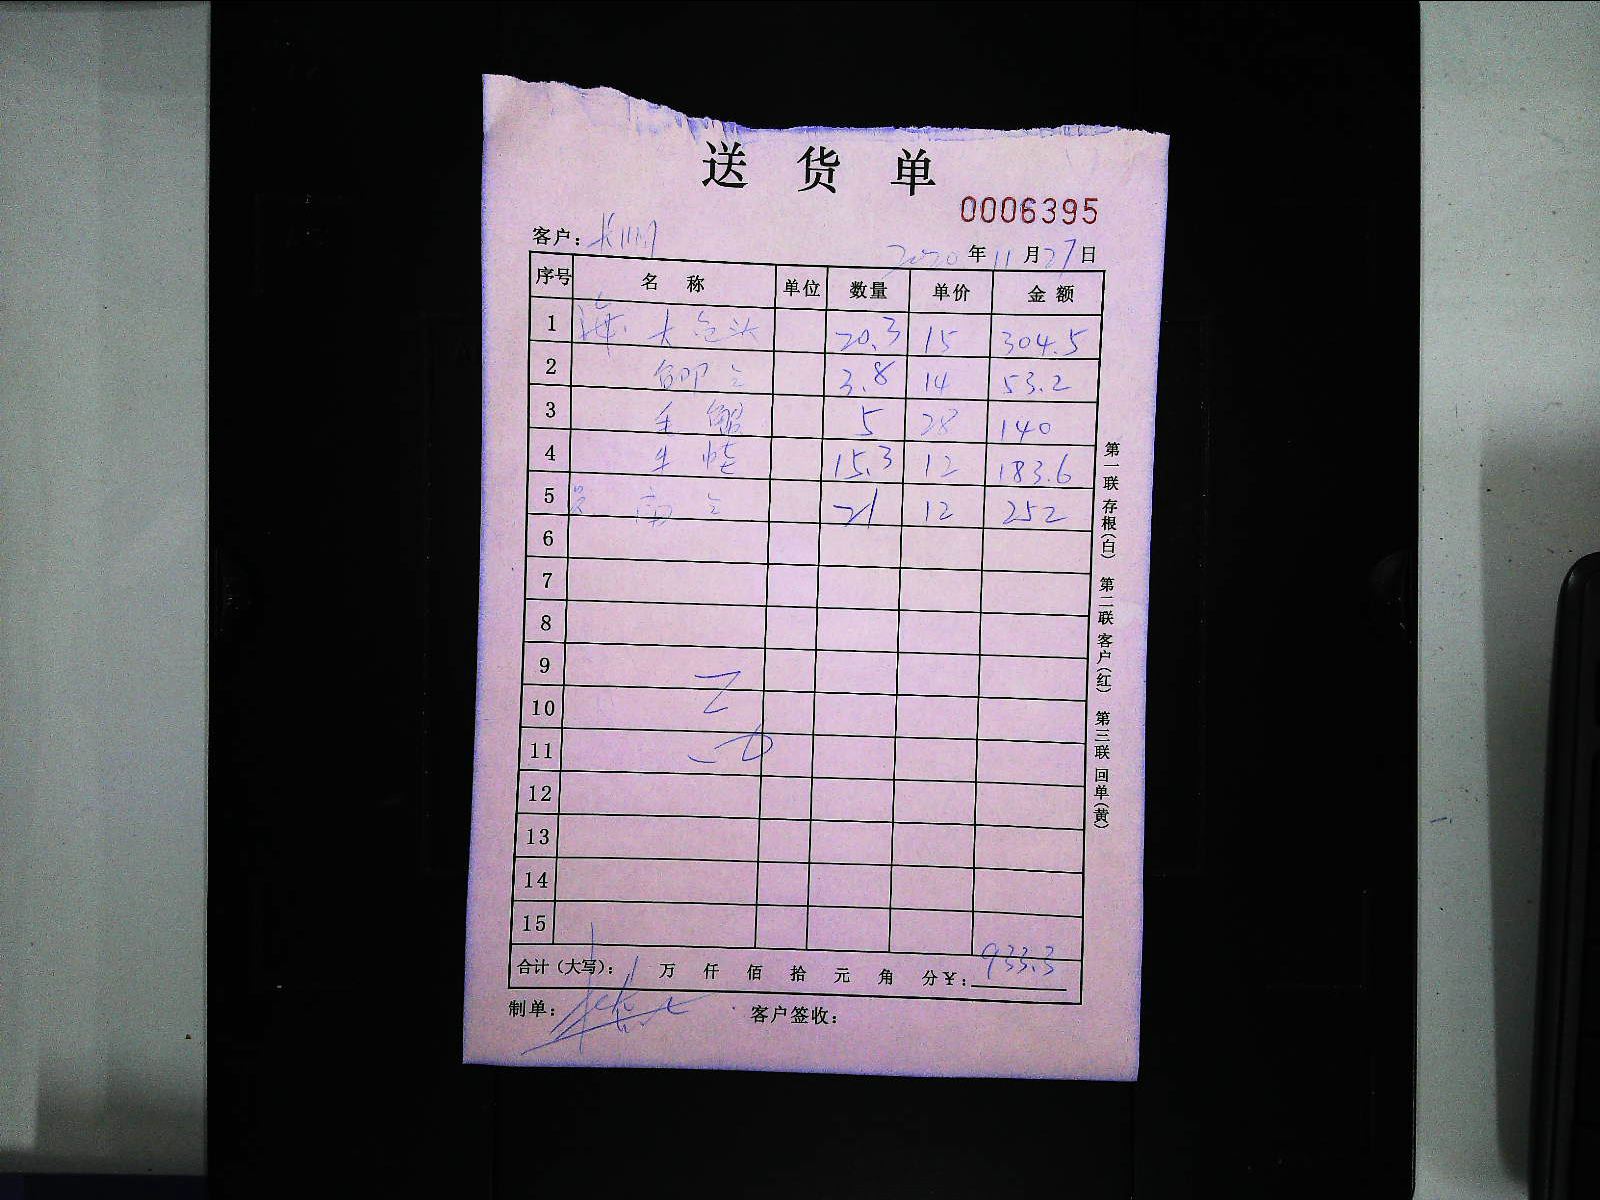 送 货 单
0006395
客户：
2020 年 11 月 27 日
序号 名 称 单位 数量 单价 金 额
1 大包头 20.3 15 304.5
2 3.8 14 53.2
3 5 28 140
4 15.3 12 183.6
5 21 12 252
6
7
8
9
10
11
12
13
14
15
合计（大写）： 万 仟 佰 拾 元 角 分 ¥：933.3
制单： 客户签收：
第一联 存根(白) 第二联 客户(红) 第三联 回单(黄)